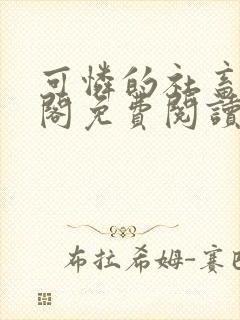 可憐的社畜
閣免費閱讀
布拉希姆-賽巴